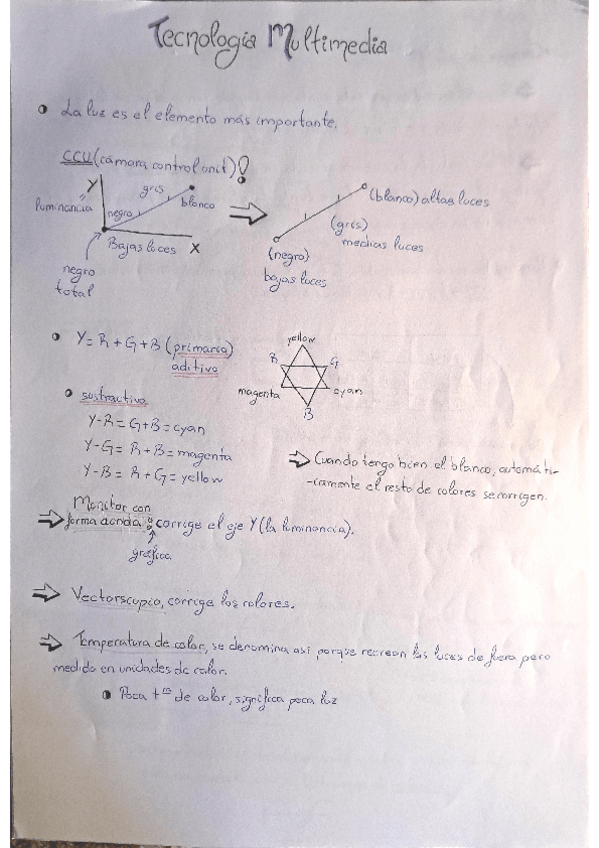 Tecnología Multimedia
La luz es el elemento más importante.
CCU (cámara control unit)!
Y
gris
blanco
luminancia
negro
Bajas luces X
negro
total
(blanco) altas luces
(gris)
medias luces
(negro)
bajas luces
Y = R + G + B (primaria)
aditivo
yellow
R
G
magenta
cyan
B
sustractivo
Y-R = G+B = cyan
Y-G = R+B = magenta
Y-B = R+G = yellow
Cuando tengo bien el blanco, automáti-
-camente el resto de colores se corrigen.
Monitor con
forma de onda: corrige el eje Y (la luminancia).
gráfica
Vectorscopio, corrige los colores.
Temperatura de color, se denomina así porque recrean las luces de fuera pero
medido en unidades de color.
Poca tª de color, significa poca luz